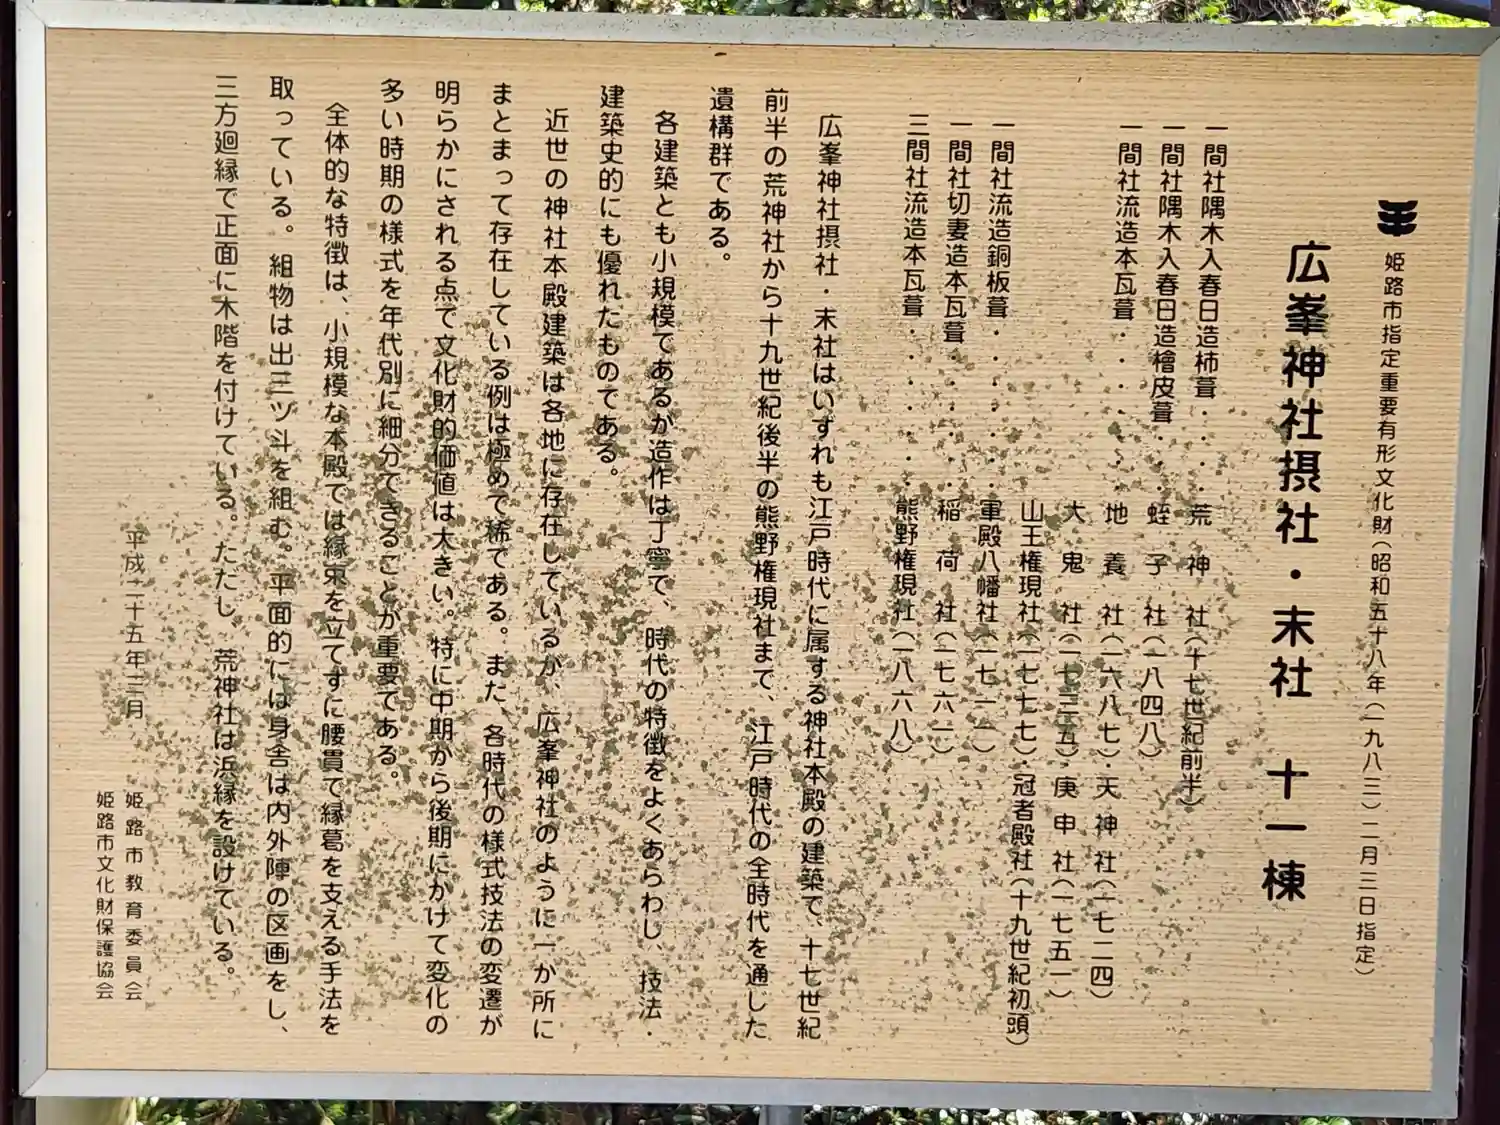 姫路市指定重要有形文化財(昭和五十八年(一九八三)二月三日指定)
広峯神社摂社・末社 十一棟
一間社隅木入春日造柿葺・・・荒神社(十七世紀前半)
一間社隅木入春日造檜皮葺・・蛭子社(一八四八)
一間社流造本瓦葺・・・・・・地養社(一六八七)・天神社(一七二四)
大鬼社(一七三五)・庚申社(一七五一)
山王権現社(一七七七)・冠者殿社(十九世紀初頭)
一間社流造銅板葺・・・・・・軍殿八幡社(一七一一)
一間社切妻造本瓦葺・・・・・稲荷社(一七六一)
三間社流造本瓦葺・・・・・・熊野権現社(一八六八)
広峯神社摂社・末社はいずれも江戸時代に属する神社本殿の建築で、十七世紀
前半の荒神社から十九世紀後半の熊野権現社まで、江戸時代の全時代を通した
遺構群である。
各建築とも小規模であるが造作は丁寧で、時代の特徴をよくあらわし、技法・
建築史的にも優れたものである。
近世の神社本殿建築は各地に存在しているが、広峯神社のように一か所に
まとまって存在している例は極めて稀である。また、各時代の様式技法の変遷が
明らかにされる点で文化財的価値は大きい。特に中期から後期にかけて変化の
多い時期の様式を年代別に細分できることが重要である。
全体的な特徴は、小規模な本殿では縁束を立てずに腰貫で縁葛を支える手法を
取っている。組物は出三ツ斗を組む。平面的には身舎は内外陣の区画をし、
三方廻縁で正面に木階を付けている。ただし、荒神社は浜縁を設けている。
平成二十五年三月
姫路市教育委員会
姫路市文化財保護協会